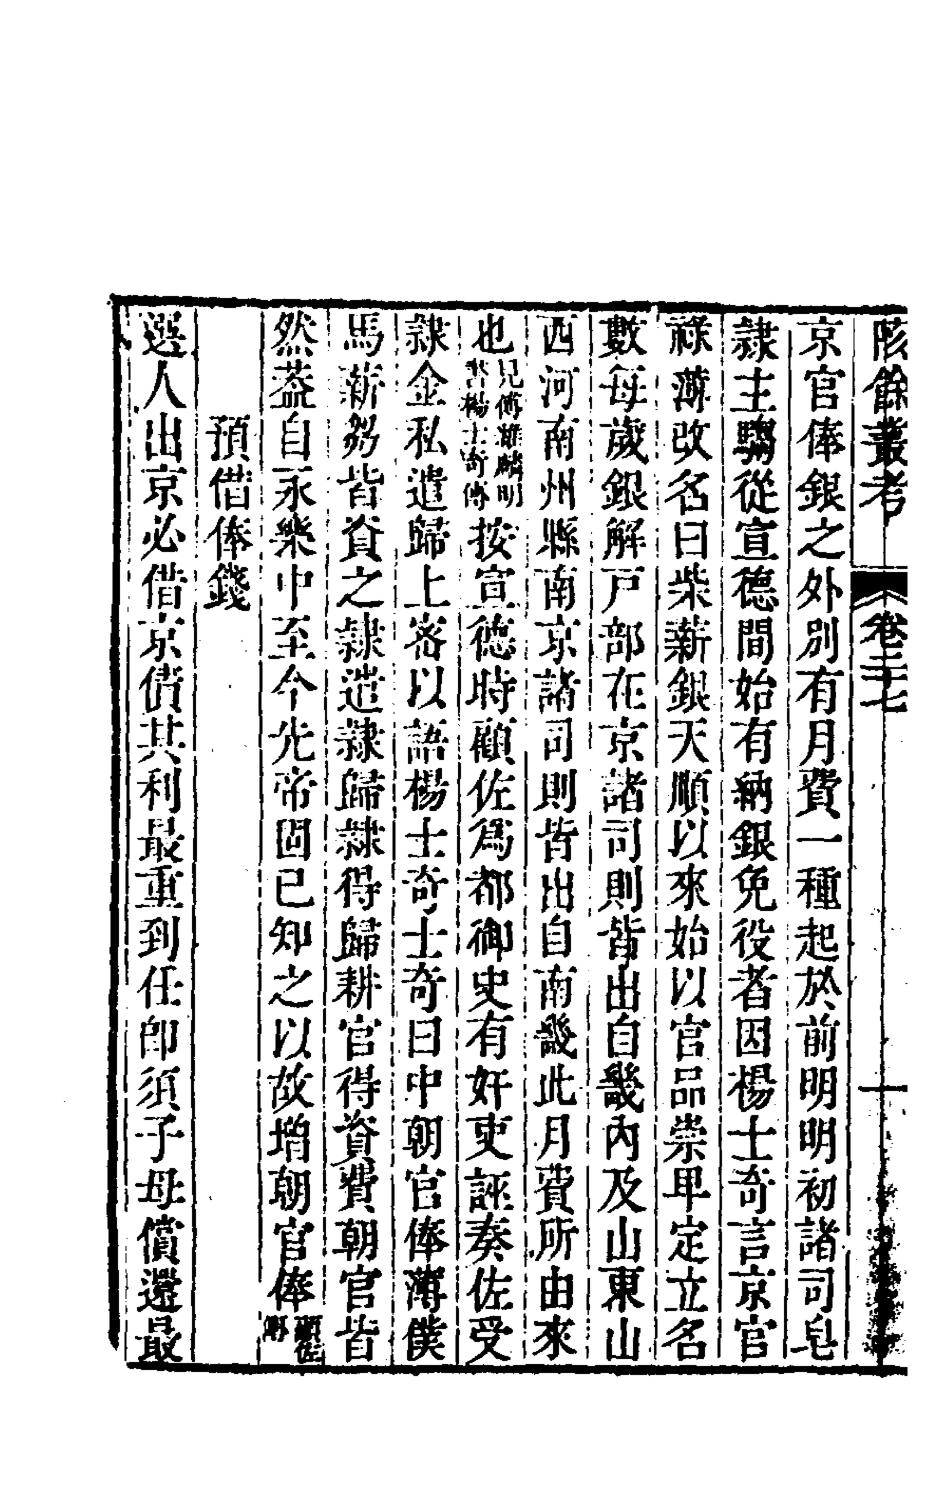 陔餘叢考 卷二十七 十
京官俸銀之外別有月費一種起於前明明初諸司皂
隸主騶從宣德間始有納銀免役者因楊士奇言京官
祿薄改名曰柴薪銀天順以來始以官品崇卑定立名
數每歲銀解戸部在京諸司則皆出自畿內及山東山
西河南州縣南京諸司則皆出自南畿此月費所由來
也見傅維麟明書楊士奇傳按宣德時顧佐爲都御史有奸吏誣奏佐受
隸金私遣歸上密以語楊士奇士奇曰中朝官俸薄僕
馬薪芻皆資之隸遣隸歸隸得歸耕官得資費朝官皆
然葢自永樂中至今先帝固已知之以故增朝官俸顧佐傳
預借俸錢
選人出京必借京債其利最重到任卽須子母償還最